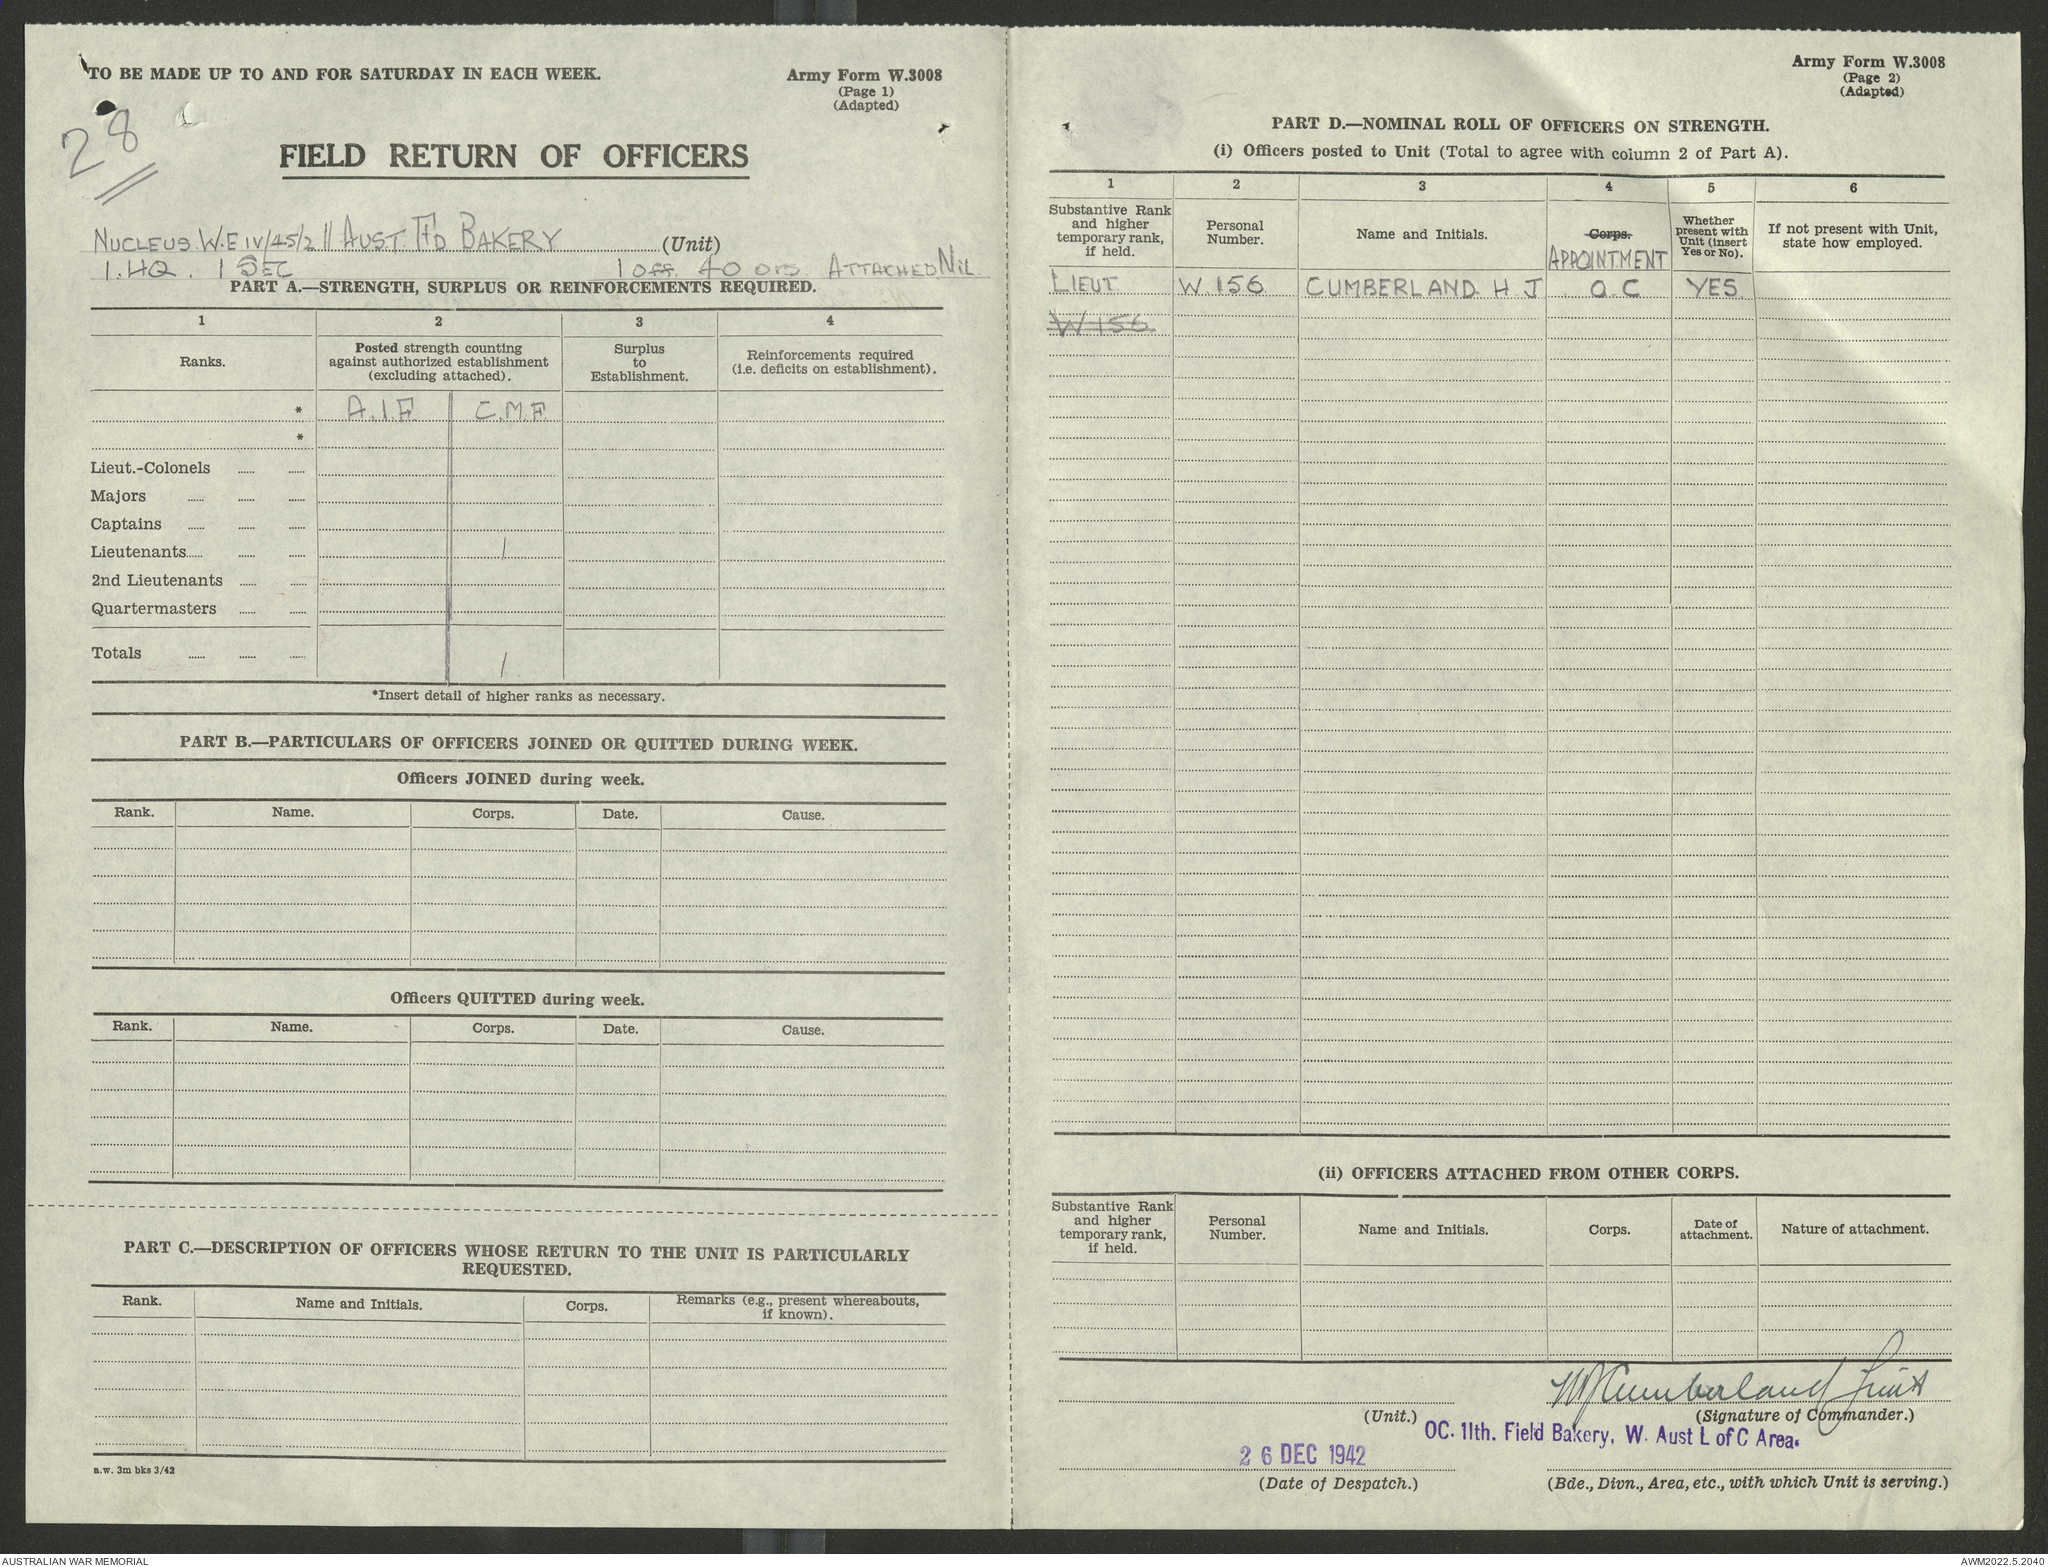 TO BE MADE UP TO AND FOR SATURDAY IN EACH WEEK.
Army Form W.3008
(Page 1)
(Adapted)
28
FIELD RETURN OF OFFICERS
NUCLEUS W.E IV/45/2 11 AUST FD BAKERY (Unit)
1. HQ. 1 SEC 1 Off. 40 ors. ATTACHED NIL
PART A.—STRENGTH, SURPLUS OR REINFORCEMENTS REQUIRED.
1 2 3 4
Ranks.
Posted strength counting against authorized establishment (excluding attached).
Surplus to Establishment.
Reinforcements required (i.e. deficits on establishment).
* A.I.F. C.M.F.
*
Lieut.-Colonels
Majors
Captains
Lieutenants 1
2nd Lieutenants
Quartermasters
Totals 1
*Insert detail of higher ranks as necessary.
PART B.—PARTICULARS OF OFFICERS JOINED OR QUITTED DURING WEEK.
Officers JOINED during week.
Rank. Name. Corps. Date. Cause.
Officers QUITTED during week.
Rank. Name. Corps. Date. Cause.
PART C.—DESCRIPTION OF OFFICERS WHOSE RETURN TO THE UNIT IS PARTICULARLY
REQUESTED.
Rank. Name and Initials. Corps. Remarks (e.g., present whereabouts, if known).
a.w. 3m bks 3/42
Army Form W.3008
(Page 2)
(Adapted)
PART D.—NOMINAL ROLL OF OFFICERS ON STRENGTH.
(i) Officers posted to Unit (Total to agree with column 2 of Part A).
1 2 3 4 5 6
Substantive Rank and higher temporary rank, if held.
Personal Number.
Name and Initials.
Corps.
APPOINTMENT
Whether present with Unit (insert Yes or No).
If not present with Unit, state how employed.
LIEUT W.156 CUMBERLAND H J O.C YES
W 156
(ii) OFFICERS ATTACHED FROM OTHER CORPS.
Substantive Rank and higher temporary rank, if held.
Personal Number.
Name and Initials.
Corps.
Date of attachment.
Nature of attachment.
HJCumberland Lieut
(Unit.) (Signature of Commander.)
OC. 11th. Field Bakery, W. Aust L of C Area.
26 DEC 1942
(Date of Despatch.) (Bde., Divn., Area, etc., with which Unit is serving.)
AUSTRALIAN WAR MEMORIAL AWM2022.5.2040